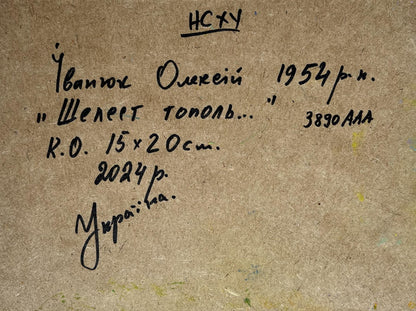 НСХУ
Іванюк Олексій 1954 р.н.
„Шелест тополь..." 3890 ААА
К.О. 15х20 см.
2024 р.
Україна.